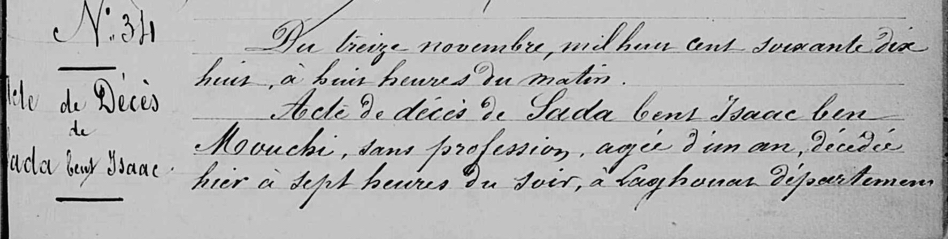 N.º 34
Acte de Décès
de
Sada bent Isaac
Du treize novembre, mil huit cent soixante dix
huit, à huit heures du matin.
Acte de décès de Sada bent Isaac ben
Mouchi, sans profession, agée d'un an, décédée
hier à sept heures du soir, à Laghouat département